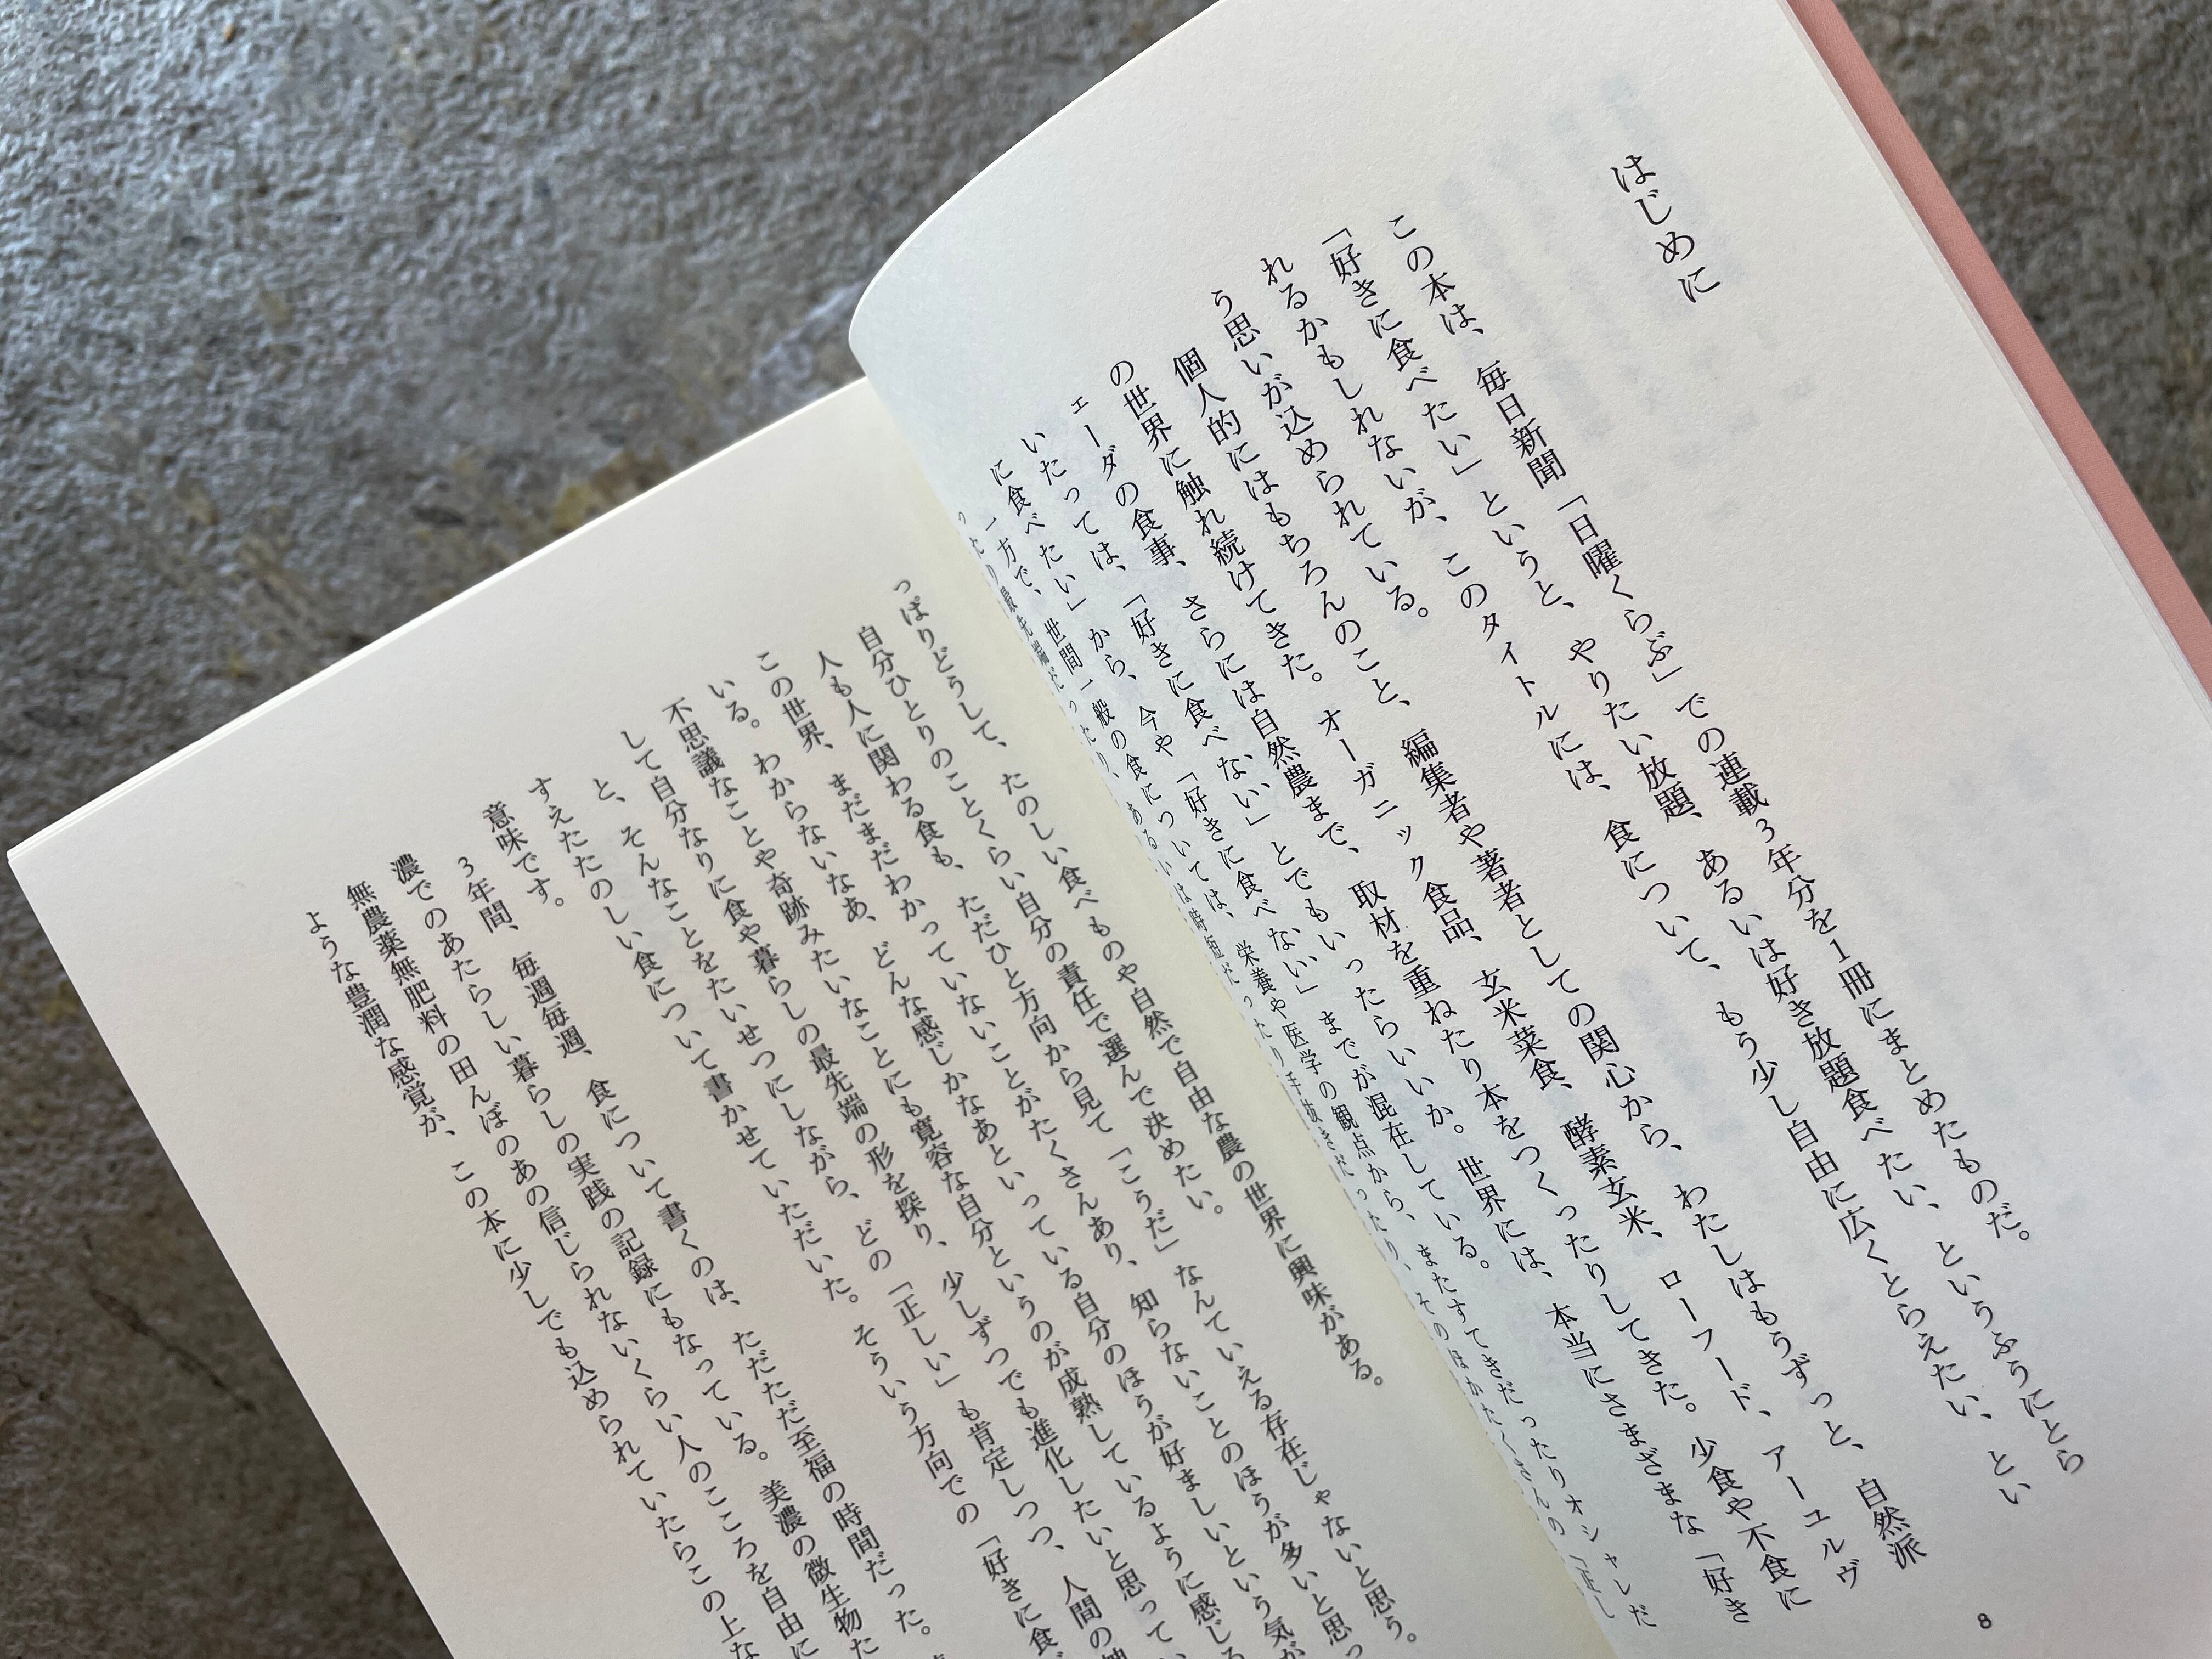 はじめに
この本は、毎日新聞「日曜くらぶ」での連載3年分を1冊にまとめたものだ。
「好きに食べたい」というと、やりたい放題、あるいは好き放題食べたい、というふうにとら
れるかもしれないが、このタイトルには、食について、もう少し自由に広くとらえたい、とい
う思いが込められている。
個人的にはもちろんのこと、編集者や著者としての関心から、わたしはもうずっと、自然派
の世界に触れ続けてきた。オーガニック食品、玄米菜食、酵素玄米、ローフード、アーユルヴ
ェーダの食事、さらには自然農まで、取材を重ねたり本をつくったりしてきた。少食や不食に
いたっては、「好きに食べない」とでもいったらいいか。世界には、本当にさまざまな「好き
に食べたい」から、今や「好きに食べない」までが混在している。
一方で、世間一般の食については、栄養や医学の観点から、またすてきだったりオシャレだ
ったり最先端だったり、あるいは時短だったり手抜きだったり、そのほかたくさんの「正し
8
っぱりどうして、たのしい食べものや自然で自由な農の世界に興味がある。
自分ひとりのことくらい自分の責任で選んで決めたい。
人も人に関わる食も、ただひと方向から見て「こうだ」なんていえる存在じゃないと思う。
この世界、まだまだわかっていないことがたくさんあり、知らないことのほうが多いと思っ
いる。わからないなあ、どんな感じかなあといっている自分のほうが好ましいという気が
不思議なことや奇跡みたいなことにも寛容な自分というのが成熟しているように感じる
して自分なりに食や暮らしの最先端の形を探り、少しずつでも進化したいと思ってい
と、そんなことをたいせつにしながら、どの「正しい」も肯定しつつ、人間の
すえたたのしい食について書かせていただいた。そういう方向での「好きに食べ
意味です。
3年間、毎週毎週、食について書くのは、ただただ至福の時間だった。
濃でのあたらしい暮らしの実践の記録にもなっている。美濃の微生物た
無農薬無肥料の田んぼのあの信じられないくらい人のこころを自由に
ような豊潤な感覚が、この本に少しでも込められていたらこの上な